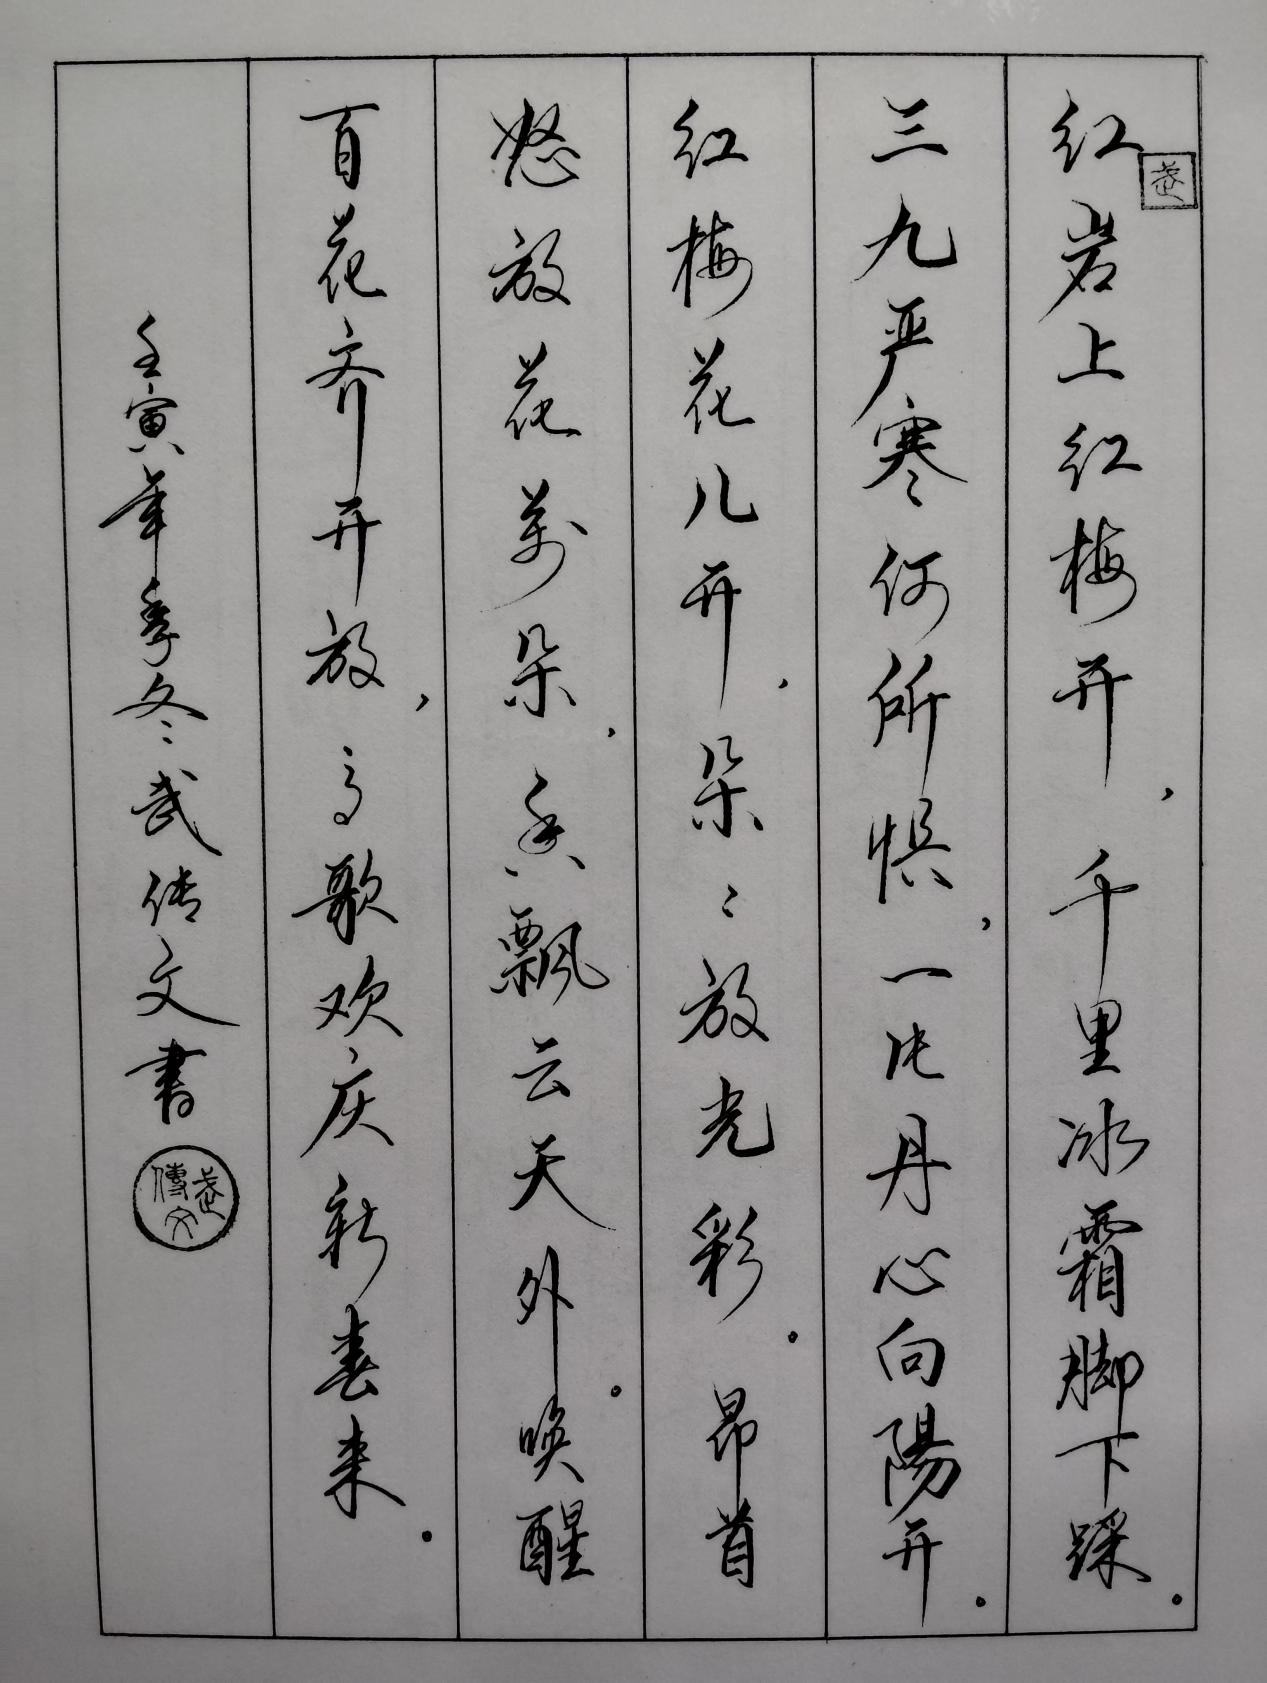 红岩上红梅开，千里冰霜脚下踩。
三九严寒何所惧，一片丹心向陽开。
红梅花儿开，朵〻放光彩。昂首
怒放花萬朵，香飘云天外。唤醒
百花齐开放，高歌欢庆新春来。
壬寅年季冬武传文書
武
武
傳文